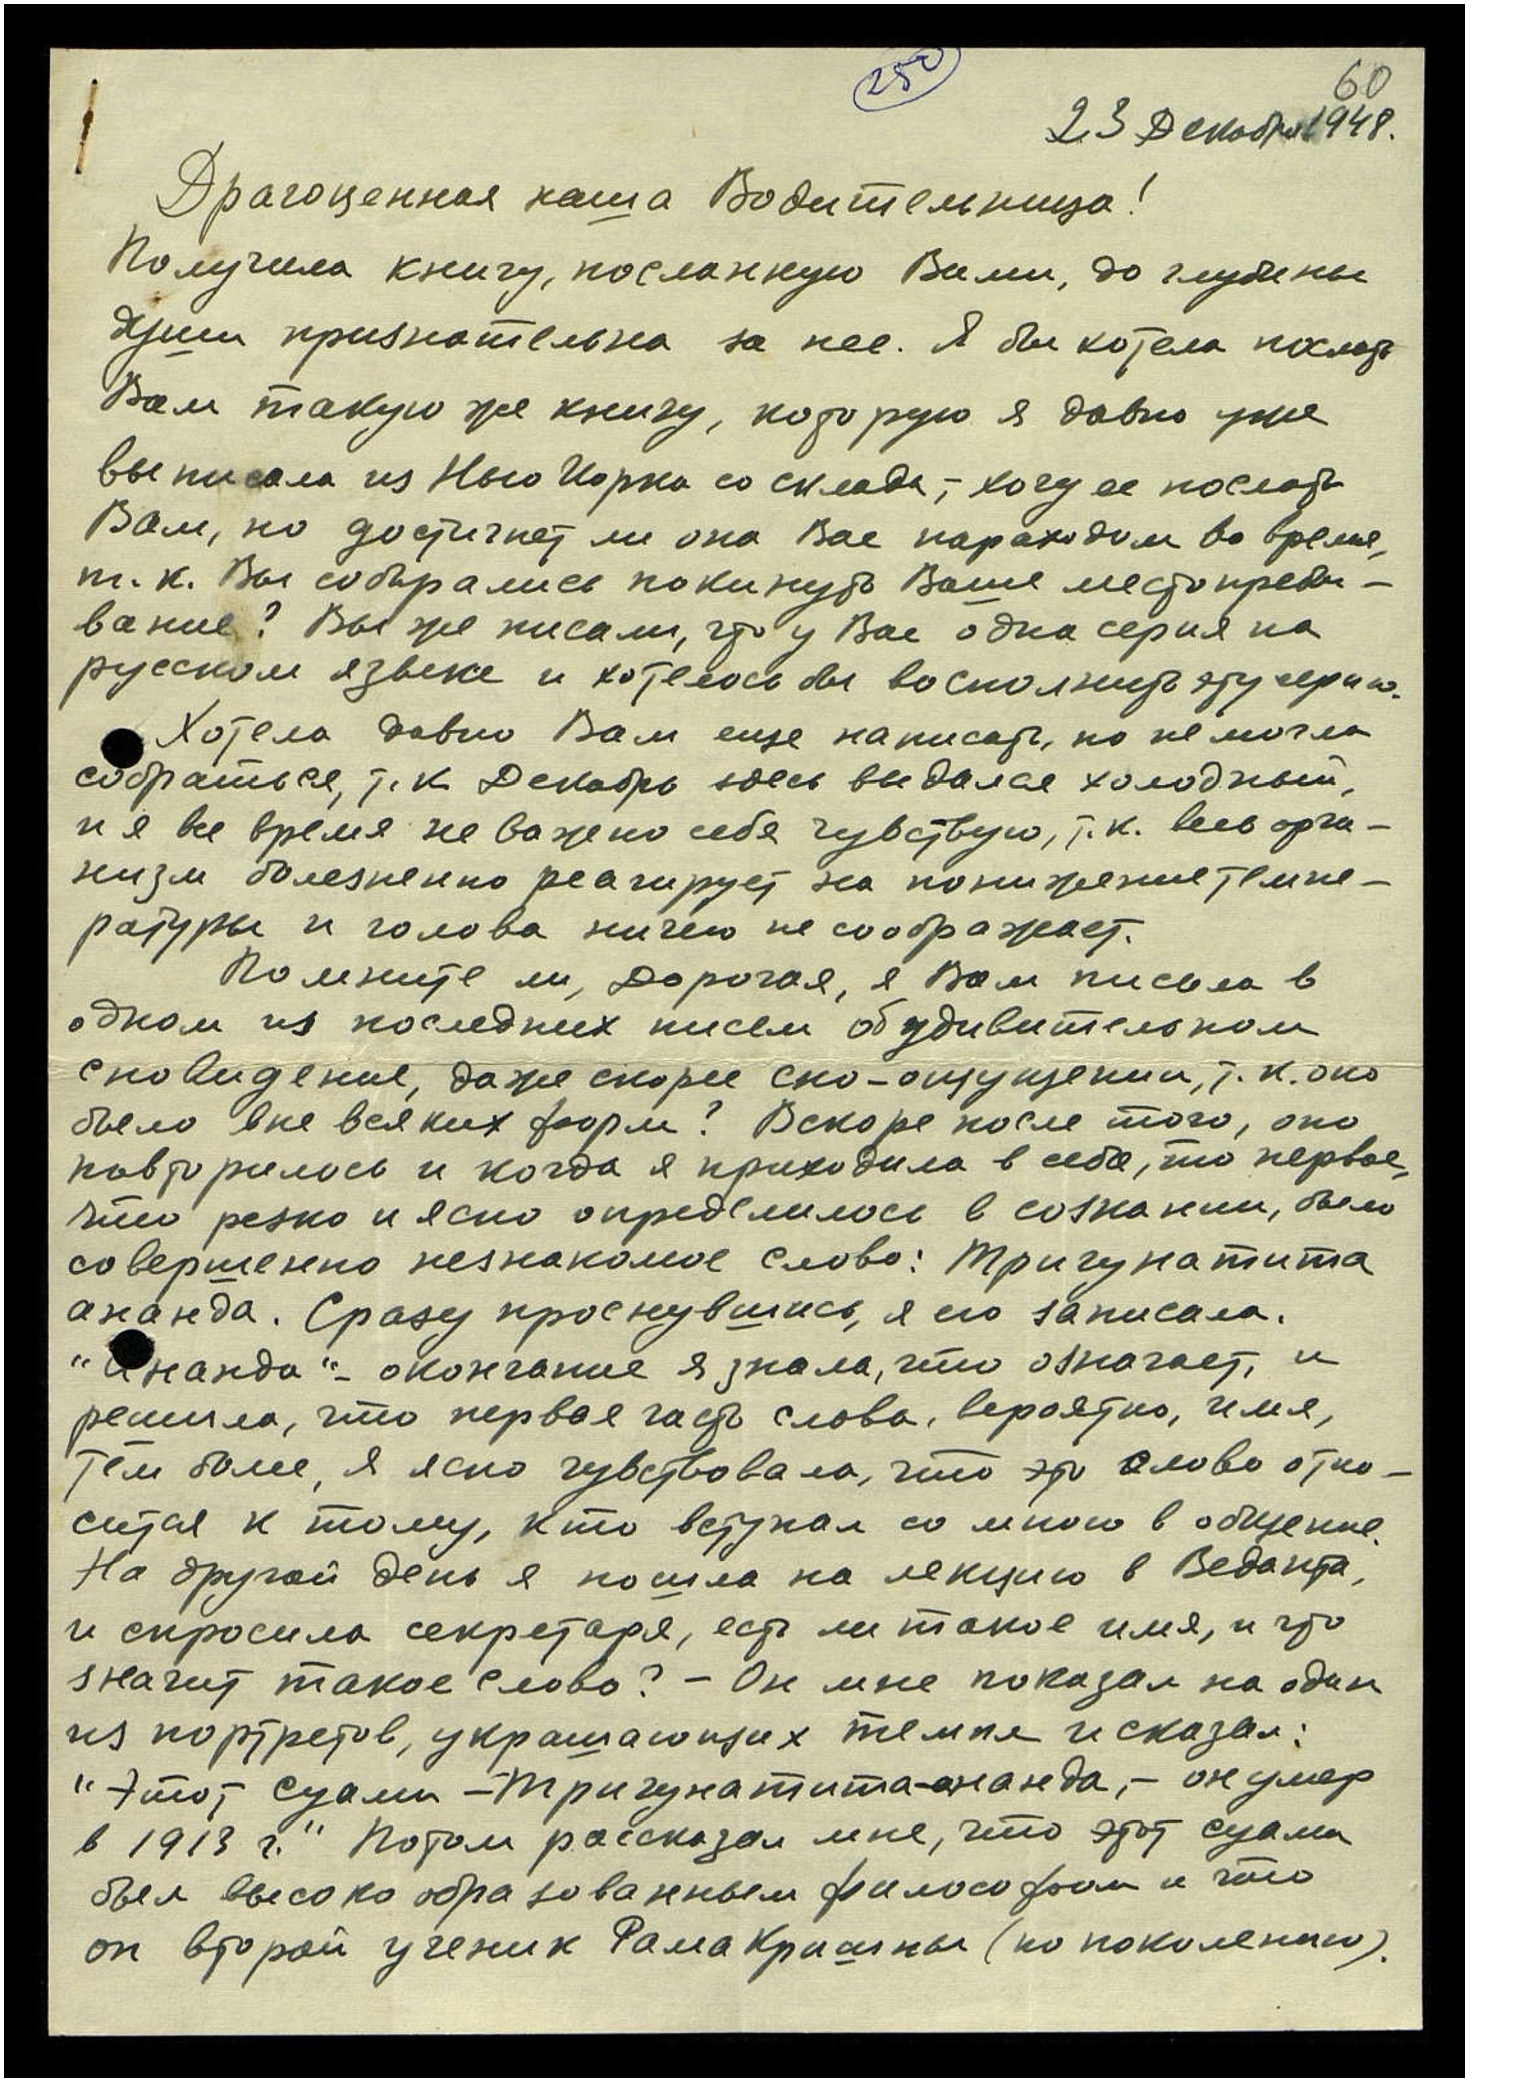 250
60
23 Декабря 1948.
Драгоценная наша Водительница!
Получила книгу, посланную Вами, до глубины
души признательна за нее. Я бы хотела послать
Вам такую же книгу, которую я давно уже
выписала из Нью Иорка со склада, – хочу ее послать
Вам, но достигнет ли она Вас пароходом во время,
т. к. Вы собирались покинуть Ваше местопребы-
вание? Вы же писали, что у Вас одна серия на
русском языке и хотелось бы восполнить эту серию.
Хотела давно Вам еще написать, но не могла
собраться, т. к Декабрь здесь выдался холодный,
и я все время не важно себя чувствую, т. к. весь орга-
низм болезненно реагирует на понижение темпе-
ратуры и голова ничего не соображает.
Помните ли, Дорогая, я Вам писала в
одном из последних писем об удивительном
сновидении, даже скорее сно-ощущении, т. к. оно
было вне всяких форм? Вскоре после того, оно
повторилось и когда я приходила в себя, то первое,
что резко и ясно определилось в сознании, было
совершенно незнакомое слово: Тригунатита
ананда. Сразу проснувшись, я его записала.
"Ананда" – окончание я знала, что означает, и
решила, что первая часть слова, вероятно, имя,
тем более, я ясно чувствовала, что это слово отно-
сится к тому, кто вступал со мною в общение.
На другой день я пошла на лекцию в Веданта,
и спросила секретаря, есть ли такое имя, и что
значит такое слово? – Он мне показал на один
из портретов, украшающих темпл и сказал:
"Этот Суами – Тригунатита-ананда, – он умер
в 1913 г." Потом рассказал мне, что этот суами
был высоко образованным философом и что
он второй ученик Рама Кришны (по поколению).